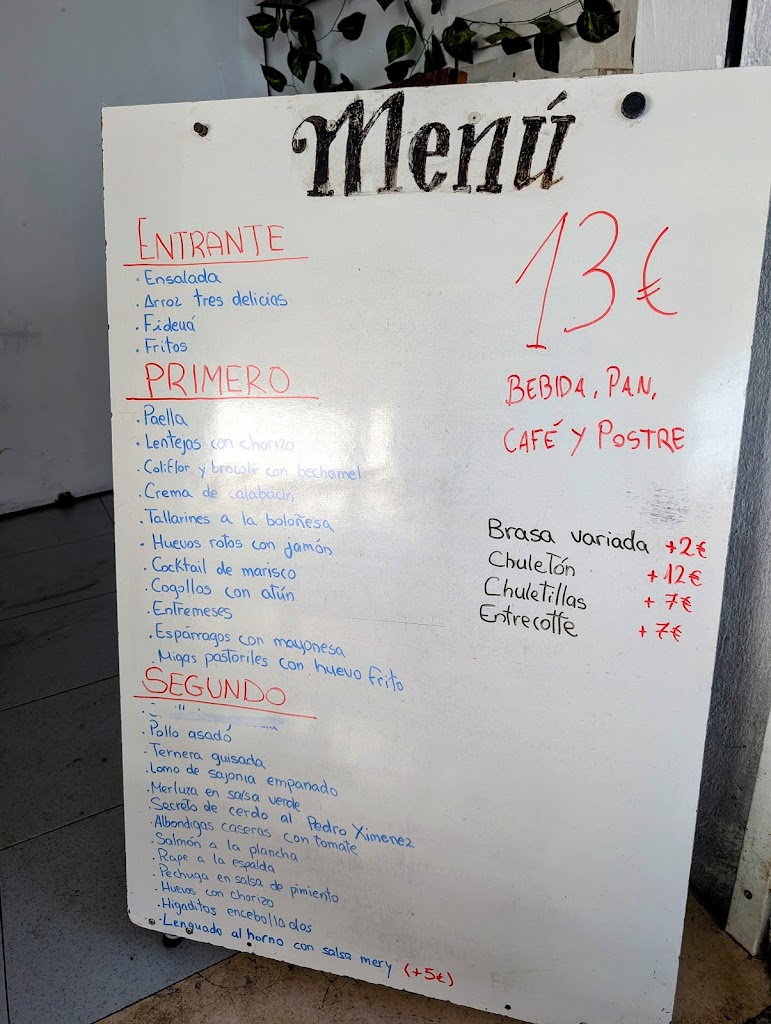 Menú
ENTRANTE
· Ensalada
· Arroz tres delicias
· Fideuá
· Fritos
PRIMERO
· Paella
· Lentejas con chorizo
· Coliflor y brócoli con bechamel
· Crema de calabacín
· Tallarines a la boloñesa
· Huevos rotos con jamón
· Cocktail de marisco
· Cogollos con atún
· Entremeses
· Espárragos con mayonesa
· Migas pastoriles con huevo frito
SEGUNDO
· Pollo asadó
· Ternera guisada
· Lomo de sajonia empanado
· Merluza en salsa verde
· Secreto de cerdo al Pedro Ximenez
· Albondigas caseras con tomate
· Salmón a la plancha
· Rape a la espalda
· Pechuga en salsa de pimiento
· Huevos con chorizo
· Higaditos encebollados
· Lenguado al horno con salsa mery (+5€)
13€
BEBIDA, PAN,
CAFÉ Y POSTRE
Brasa variada +2€
Chuletón +12€
Chuletillas +7€
Entrecotte +7€